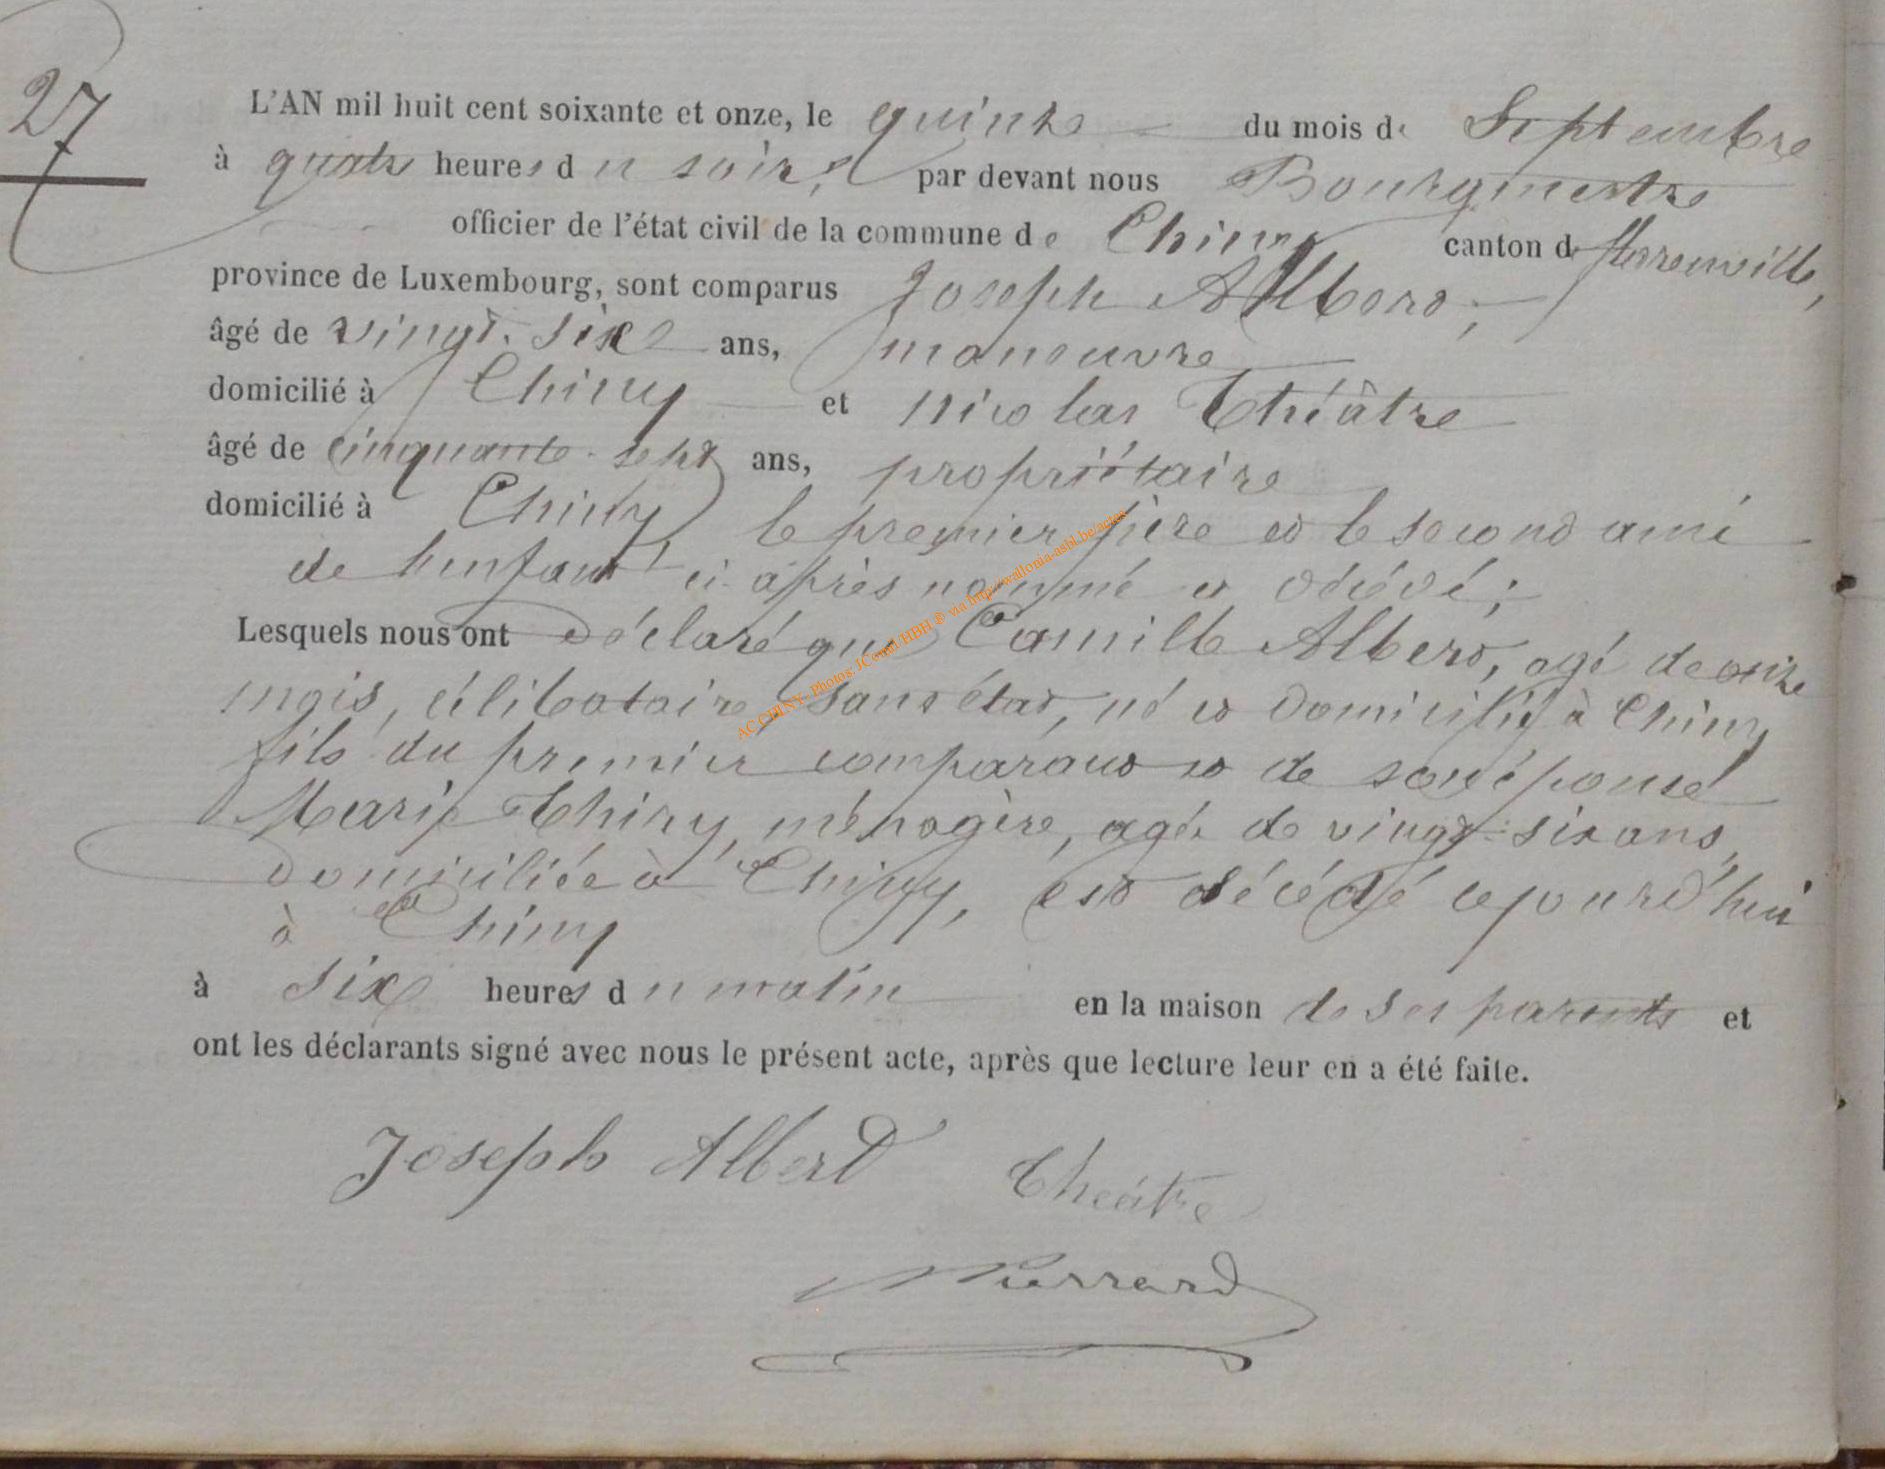 27
L'AN mil huit cent soixante et onze, le quinze du mois de Septembre
à quatre heures du soir, par devant nous Bourgmestre
officier de l'état civil de la commune de Chiny canton de Florenville,
province de Luxembourg, sont comparus Joseph Albert,
âgé de vingt-six ans, manoeuvre
domicilié à Chiny et Nicolas Théâtre
âgé de cinquante-sept ans, propriétaire
domicilié à Chiny le premier père et le second ami
de l'enfant ci-après nommé et décédé;
Lesquels nous ont déclaré que Camille Albert, agé de onze
mois, célibataire, sans état, né et domicilié à Chiny
fils du premier comparant et de son épouse
Marie Thiry, ménagère, agée de vingt-six ans,
domiciliée à Chiny, est décédé cejourd'hui
à Chiny
à six heures du matin en la maison de ses parents et
ont les déclarants signé avec nous le présent acte, après que lecture leur en a été faite.
Joseph Albert Théâtre
Pierrard
AC CHINY- Photos JCorail HBH ® via http://wallonia-asbl.be/actes